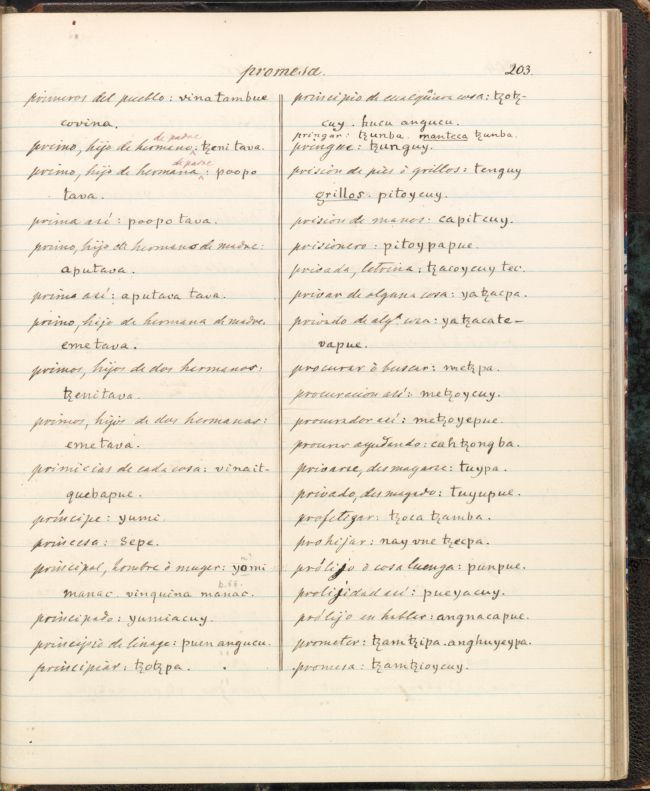 promesa.
203.
primeros del pueblo: vinatambue
covina.
de padre
primo, hijo de hermano: tzenitava.
de padre
primo, hijo de hermana: poopo
tava.
prima así: poopo tava.
primo, hijo de hermano de madre:
aputava.
prima así: aputava tava.
primo, hijo de hermana de madre.
emetava.
primos, hijos de dos hermanos:
tzenitava.
primos, hijos de dos hermanas:
emetava.
primicias de cada cosa: vinait-
quebapue.
príncipe: yumi.
princesa: Sepe.
principal, hombre ò muger: yomi
manac. vinquina manac.
principado: yumiacuy.
principio de linage: puen angucu.
principiar: tzotzpa.
principio de cualqüiera cosa: tzotz-
cuy. hucu angucu.
pringar: tzunba. manteca tzunba.
pringue: tzunguy.
prision de pies ò grillos: tenguy
grillos. pitoycuy.
prision de manos: capitcuy.
prisionero: pitoypapue.
privada, letrina: tzacoycuy tec.
privar de alguna cosa: yatzacpa.
privado de algª. cosa: yatzacate-
vapue.
procurar ò buscar: metzpa.
procuracion así: metzoycuy.
procurador así: metzoyepue.
procurar ayudando: cahtzongba.
privarse, desmayarse: tuypa.
privado, desmayado: tuyupue.
profetizar: tzoca tzamba.
prohijar: nay vne tzecpa.
prólijo ò cosa luenga: punpue.
prolijidad así: pueyacuy.
prólijo en hablar: angnacapue.
prometer: tzamtzipa. anghuyaypa.
promesa: tzamtzioycuy.